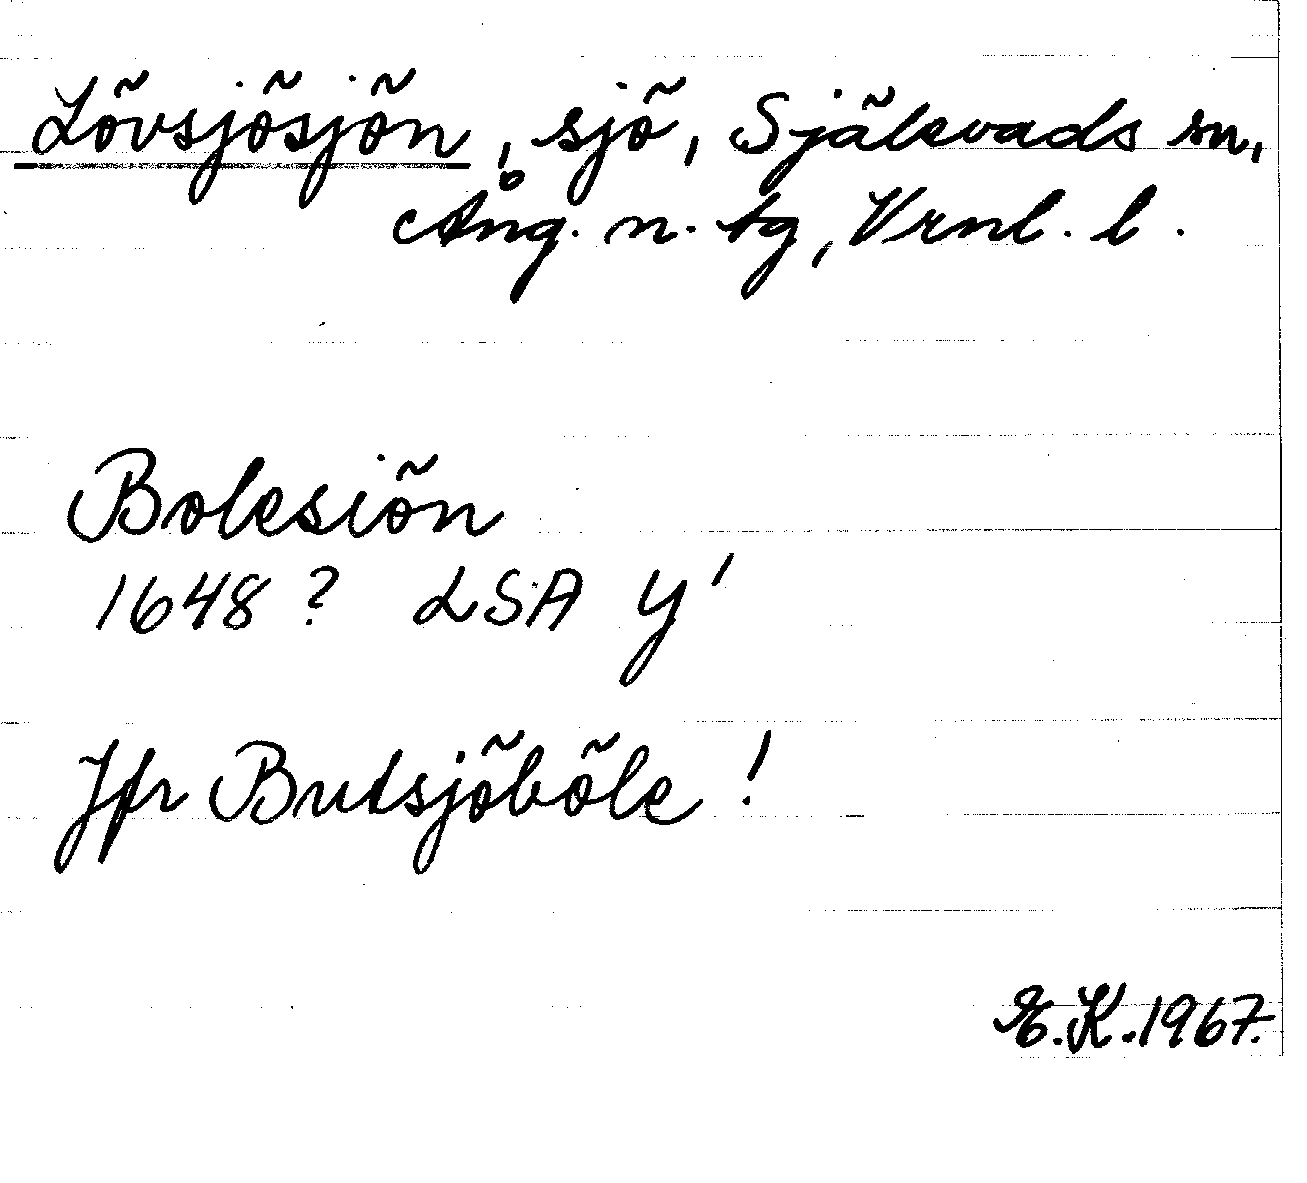 Lövsjösjön, sjö, Själevads sn,
Ång. n. tg, Vrnl. l.
Bolesiön
1648? LSA Y'
Jfr Butsjöböle!
E.K. 1967.